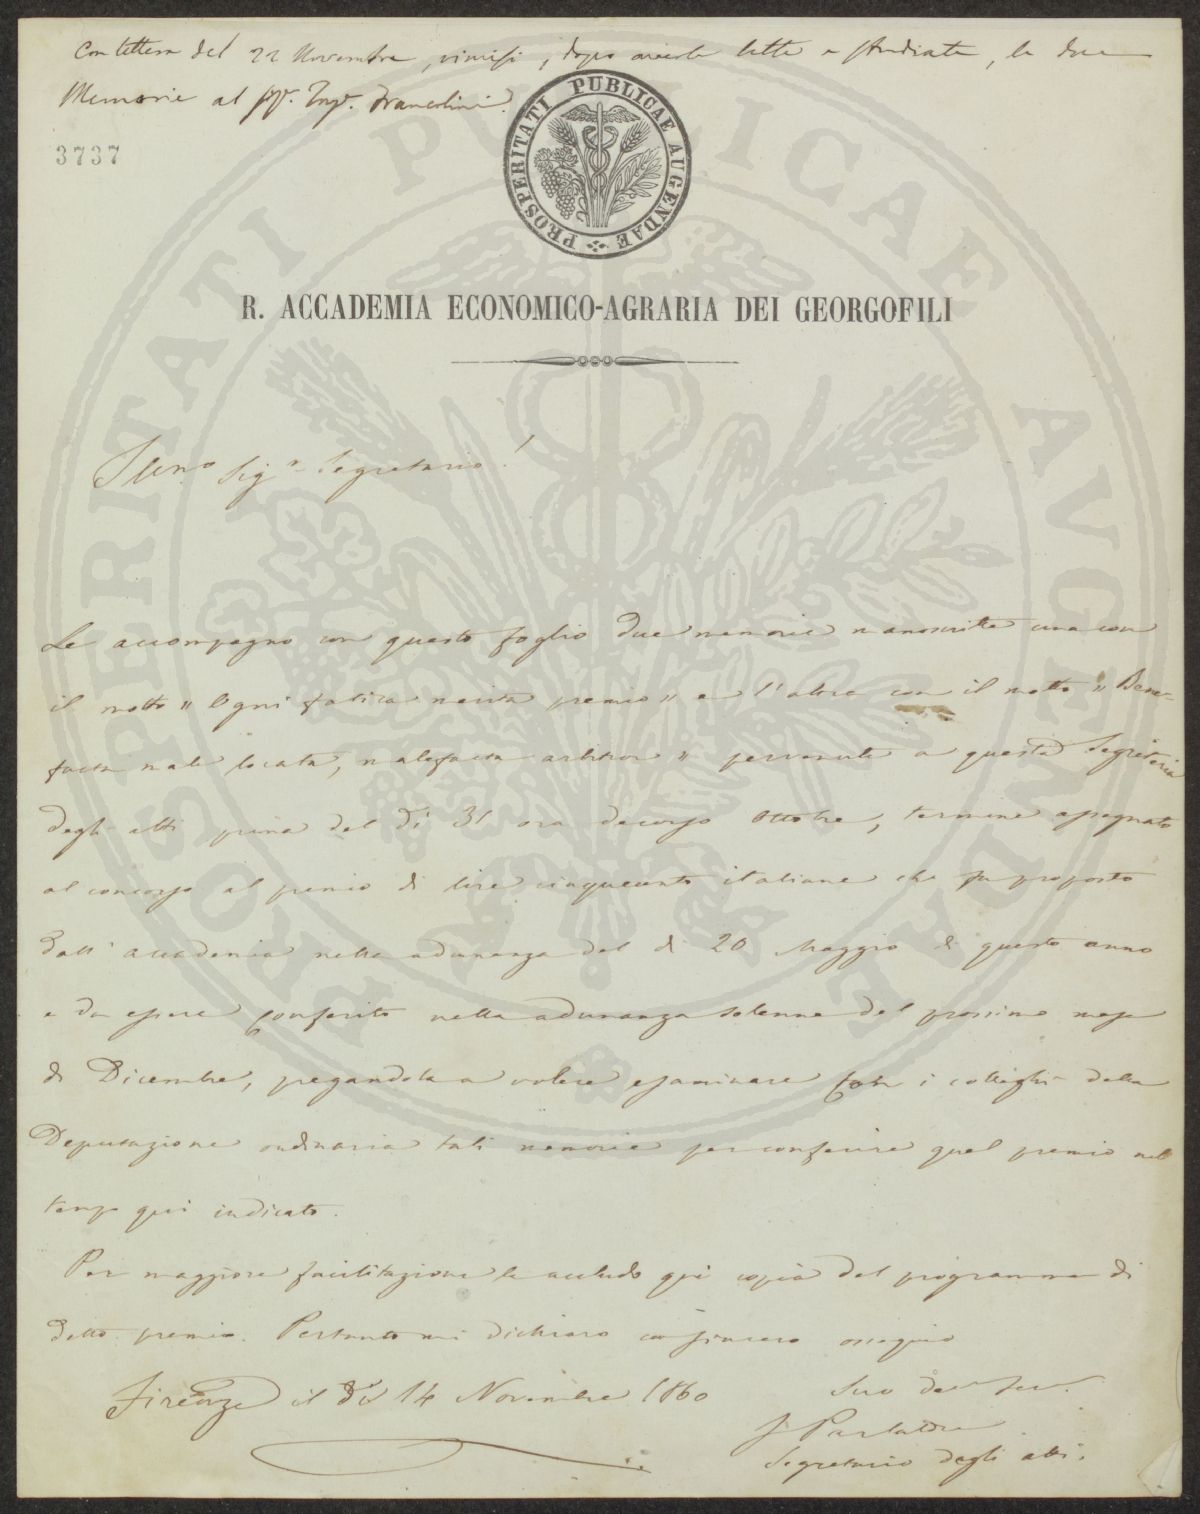 Con lettera del 22 Novembre, rimisi, dopo averle lette e studiate, le due
Memorie al Sig.r Ing.r Francolini.
3737
PROSPERITATI PUBLICAE AUGENDAE
R. ACCADEMIA ECONOMICO-AGRARIA DEI GEORGOFILI
Illmo. Sigr. Segretario!
Le accompagno con questo foglio due memorie manoscritte una con
il motto " Ogni fatica merita premio " e l'altra con il motto " Bene-
facta male locata, malefacta arbitror " pervenute a questa Segreteria
degli atti prima del dì 31 ora decorso Ottobre, termine assegnato
al concorso al premio di lire cinquecento italiane che fu proposto
dall'accademia nella adunanza del dì 20 Maggio di questo anno
e da essere conferito nella adunanza solenne del prossimo mese
di Dicembre, pregandola a volere esaminare con i colleghi della
Deputazione ordinaria tali memorie per conferire quel premio nel
tempo qui indicato.
Per maggiore facilitazione le accludo qui copia del programma di
detto premio. Pertanto mi dichiaro con sincero ossequio
Firenze il dì 14 Novembre 1860
Suo dev. serv.
F Parlatore
Segretario degli atti.